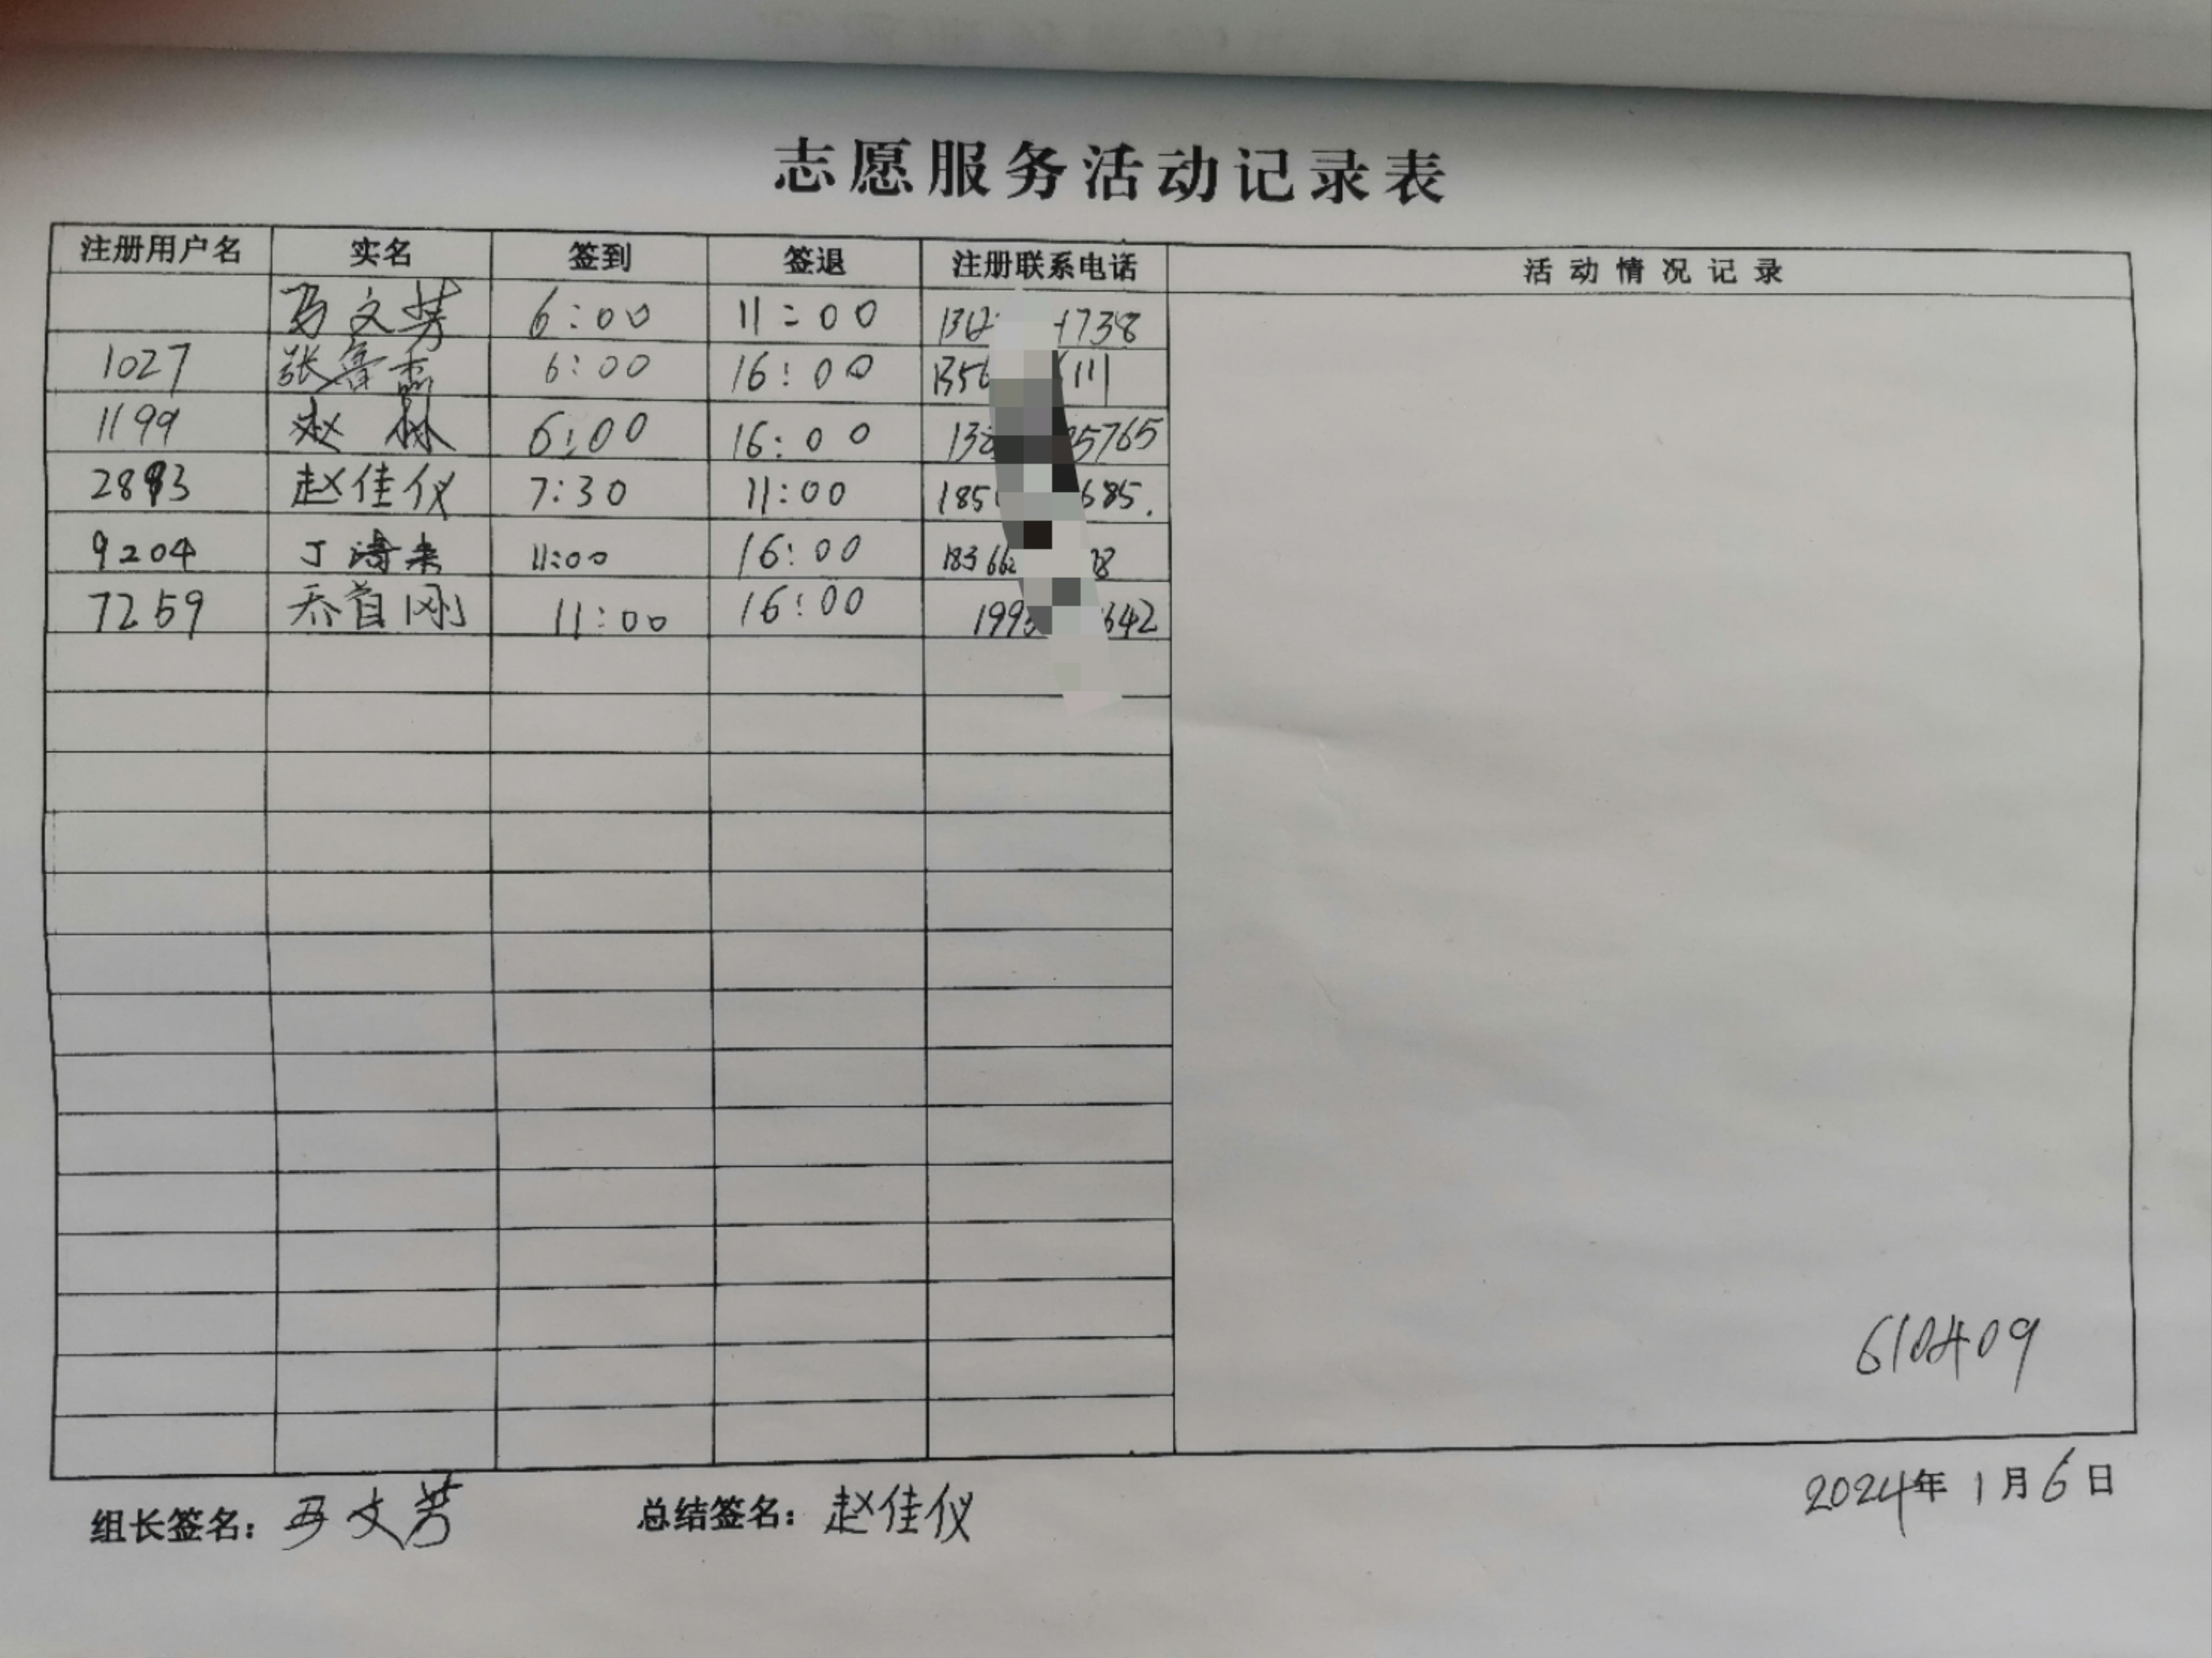 志愿服务活动记录表
注册用户名 实名 签到 签退 注册联系电话 活动情况记录
马文芳 6:00 11:00 1312 1738
1027 张鲁 6:00 16:00 1356 111
1199 赵林 6:00 16:00 138 5765
2893 赵佳仪 7:30 11:00 185 685.
9204 丁 11:00 16:00 18366 78
7259 乔首刚 11:00 16:00 199 642
610409
组长签名：马文芳 总结签名：赵佳仪 2024年1月6日